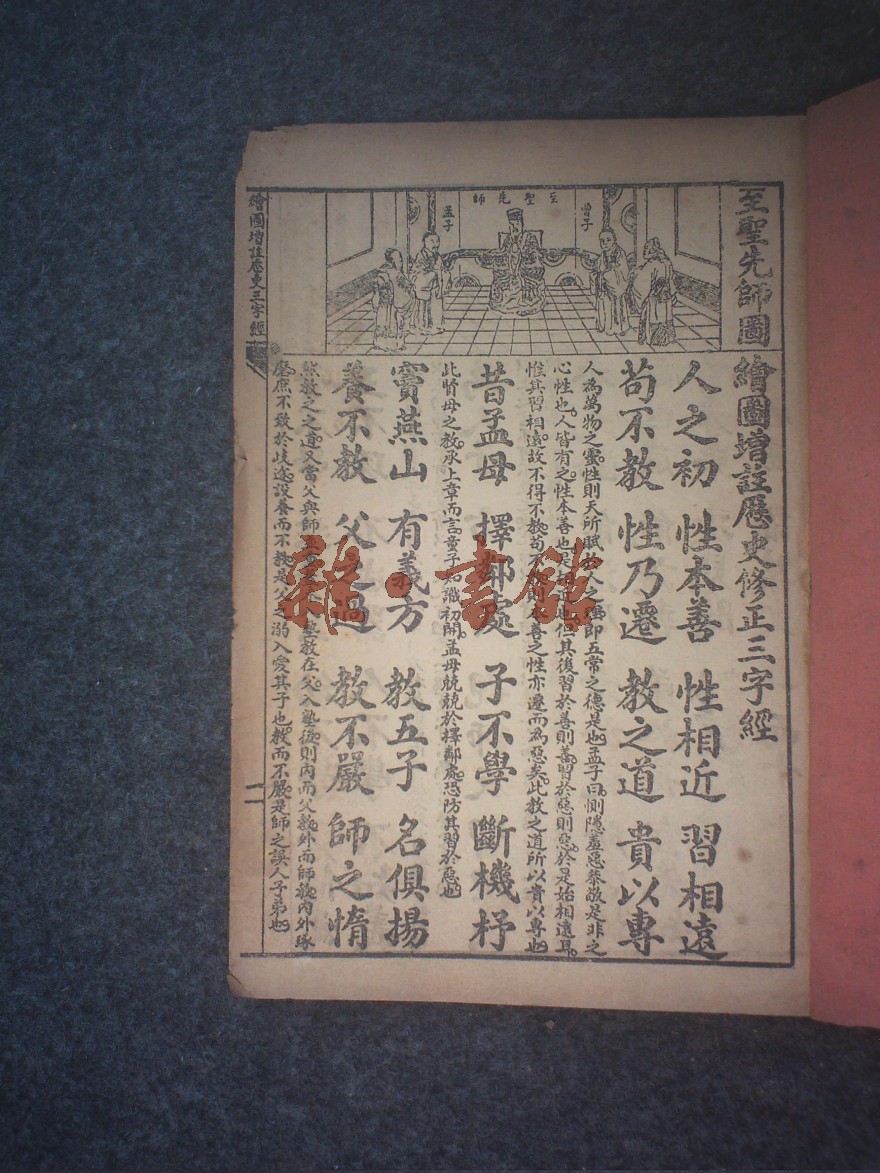 至聖先師圖
至聖先師
曾子
孟子
繪圖增註歷史修正三字經
人之初 性本善 性相近 習相遠
苟不教 性乃遷 教之道 貴以專
人為萬物之靈性則天所賦於人之理即五常之德是也孟子曰惻隱羞惡恭敬是非之
心性也人皆有之性本善也是也但其後習於善則善習於惡則惡於是始相遠耳
惟其習相遠故不得不教苟不則善之性亦遷而為惡矣此教之道所以貴以專也
昔孟母 擇鄰處 子不學 斷機杼
此賢母之教承上章而言童子知識初開孟母兢兢於擇鄰處恐防其習於惡也
竇燕山 有義方 教五子 名俱揚
養不教 父之過 教不嚴 師之惰
然教之之道又當父與師塾教在父入塾後則內而父教外而師教內外琢
磨庶不致於歧途設養而不教是父之溺入愛其子也教而不嚴是師之誤人子弟也
繪圖增註歷史三字經
二
雜·書館